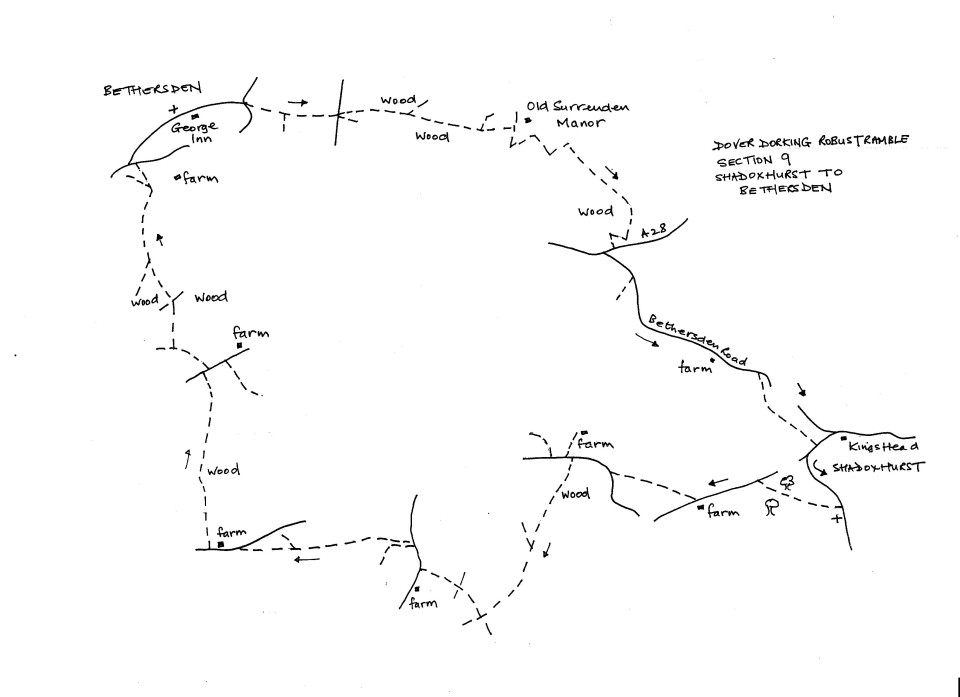 BETHERSDEN
George
Inn
farm
wood
wood
Old Surrenden
Manor
DOVER DORKING ROBUSTRAMBLE
SECTION 9
SHADOXHURST TO
BETHERSDEN
wood
A28
Bethersden Road
farm
Kings Head
SHADOXHURST
farm
farm
wood
farm
farm
wood
farm
wood
wood